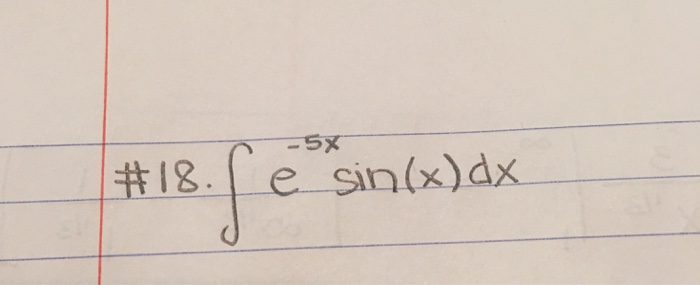 #18. ∫ e^{-5x} sin(x) dx